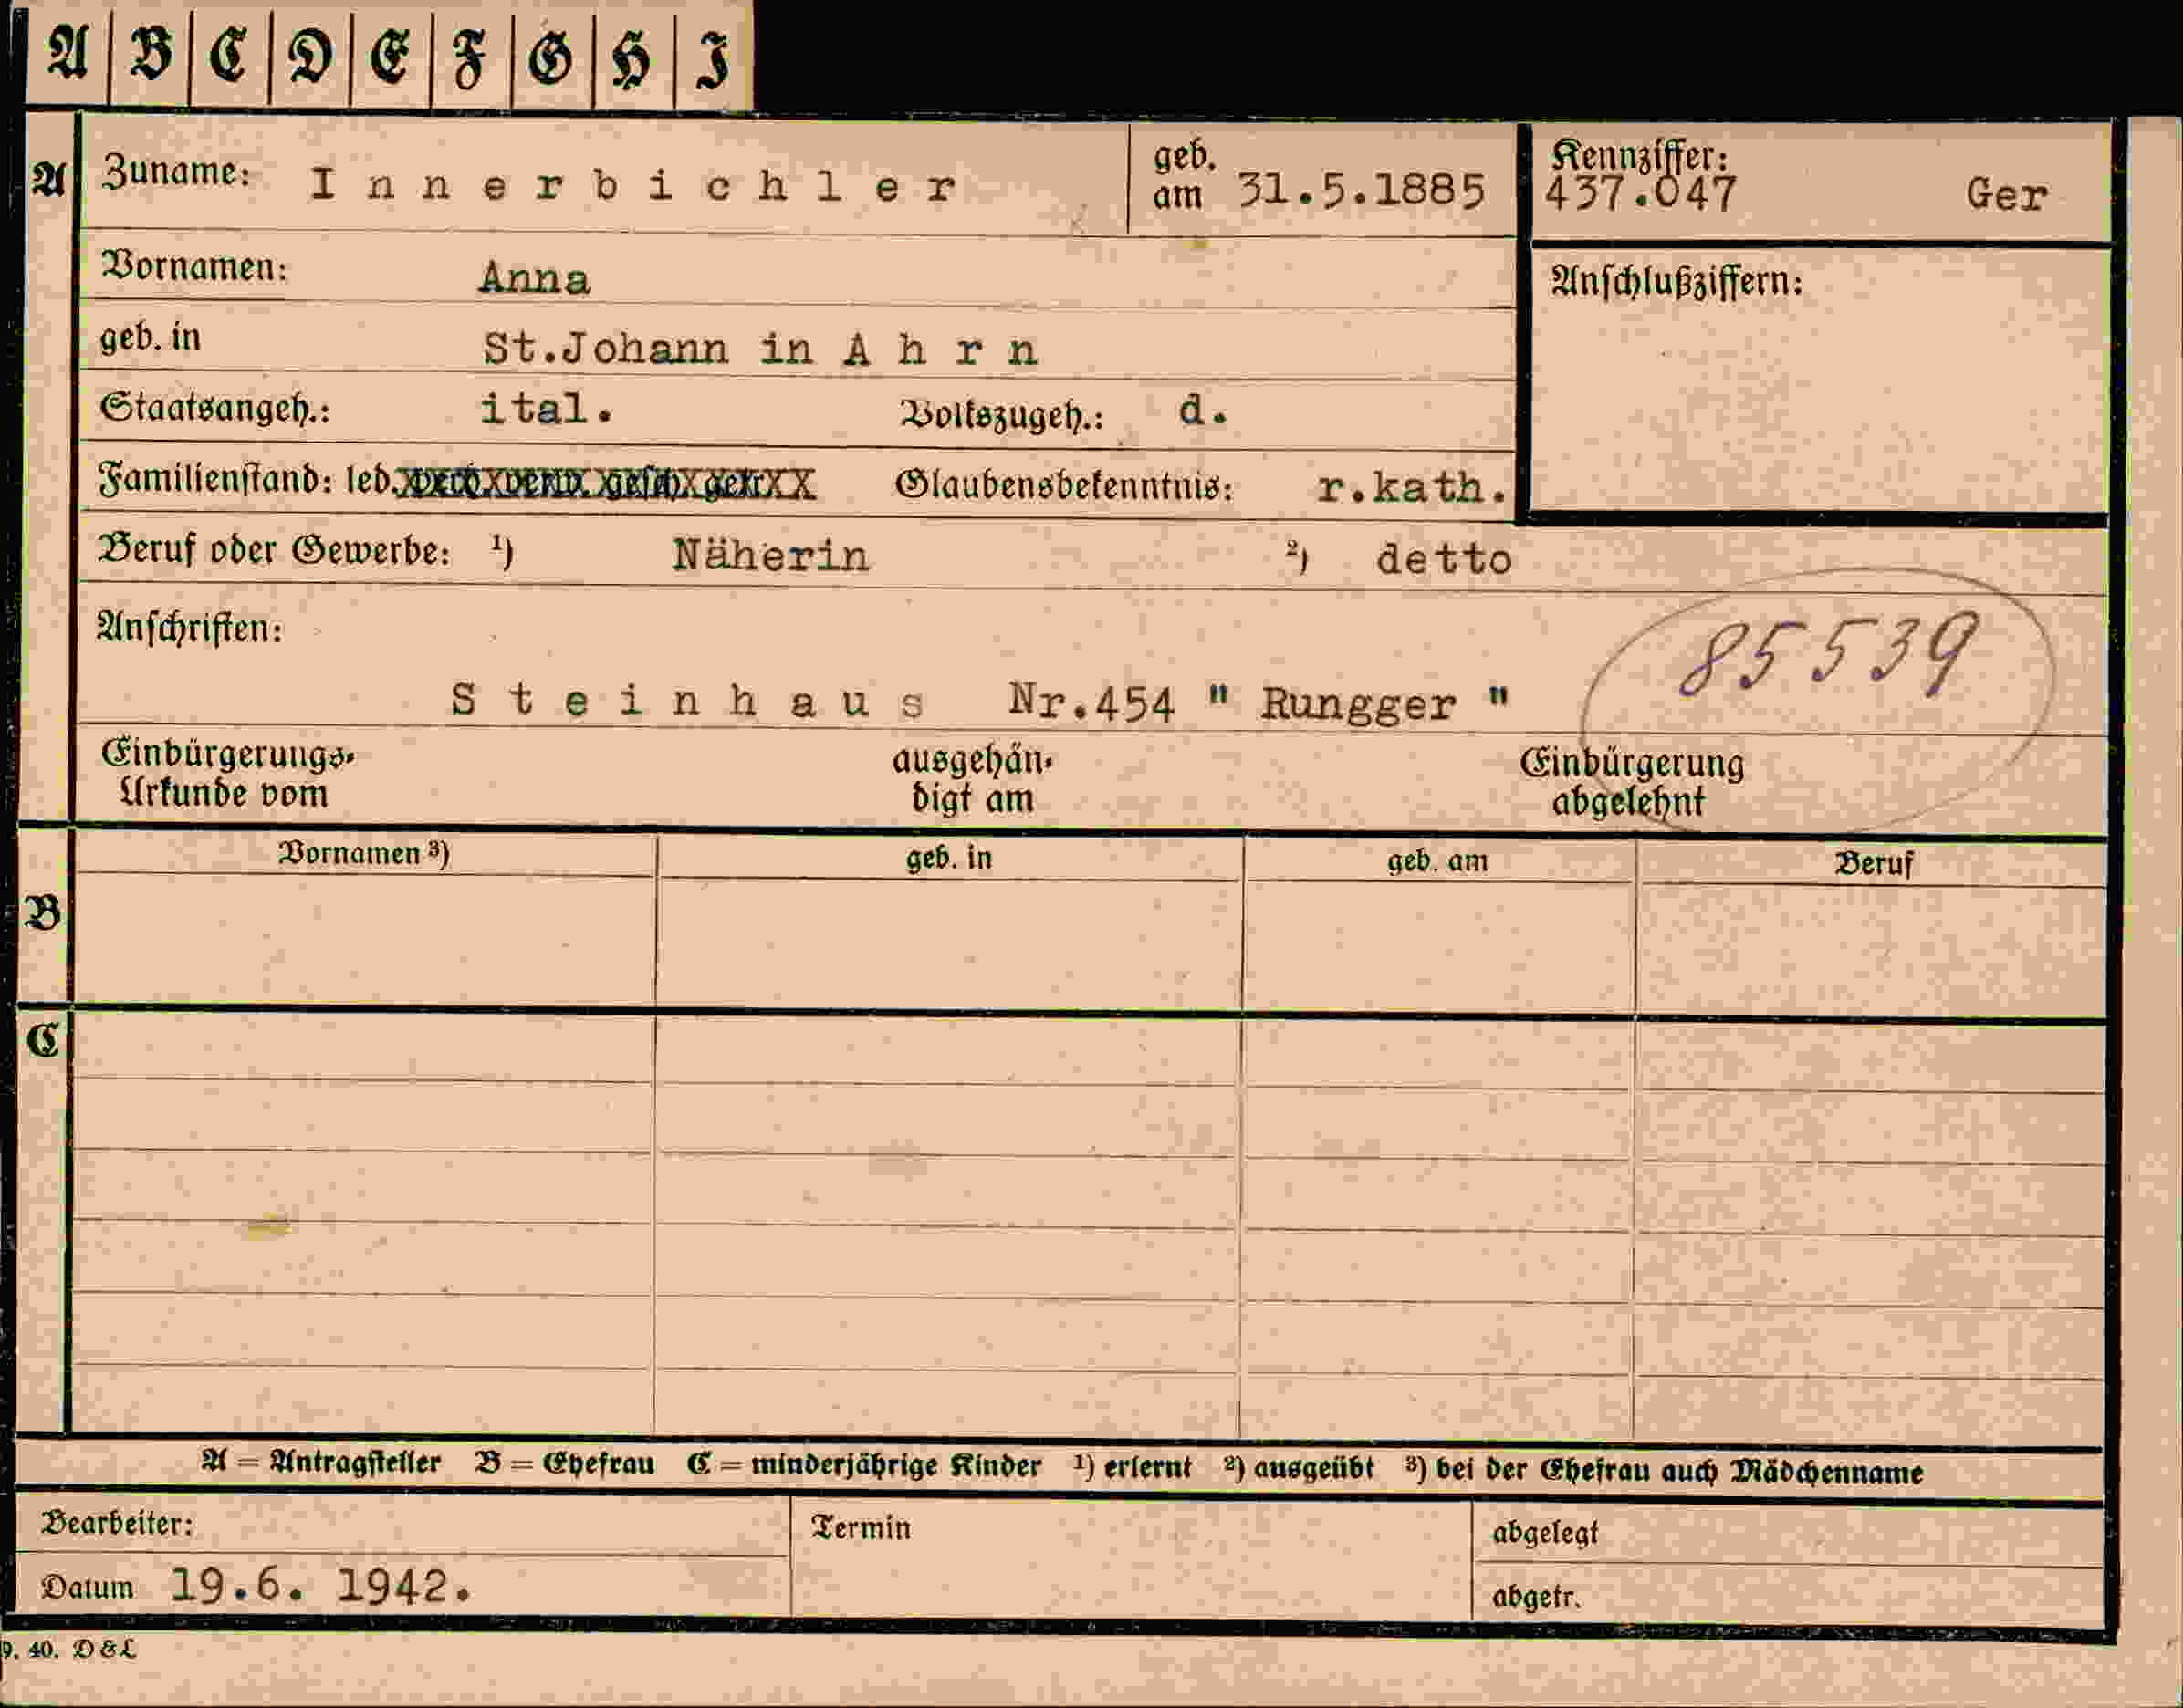 A B C D E F G H I
A Zuname: Innerbichler geb. am 31.5.1885 Kennziffer: 437.047 Ger
Vornamen: Anna Anschlußziffern:
geb. in St.Johann in Ahrn
Staatsangeh.: ital. Volkszugeh.: d.
Familienstand: led. verh. verw. gesch. getr. Glaubensbekenntnis: r.kath.
Beruf oder Gewerbe: ¹) Näherin ²) detto
Anschriften: 85539
Steinhaus Nr.454 " Rungger "
Einbürgerungs- ausgehän- Einbürgerung
Urkunde vom digt am abgelehnt
Vornamen ³) geb. in geb. am Beruf
B
C
A = Antragsteller B = Ehefrau C = minderjährige Kinder ¹) erlernt ²) ausgeübt ³) bei der Ehefrau auch Mädchenname
Bearbeiter: Termin abgelegt
Datum 19.6. 1942. abgetr.
9. 40. D & L